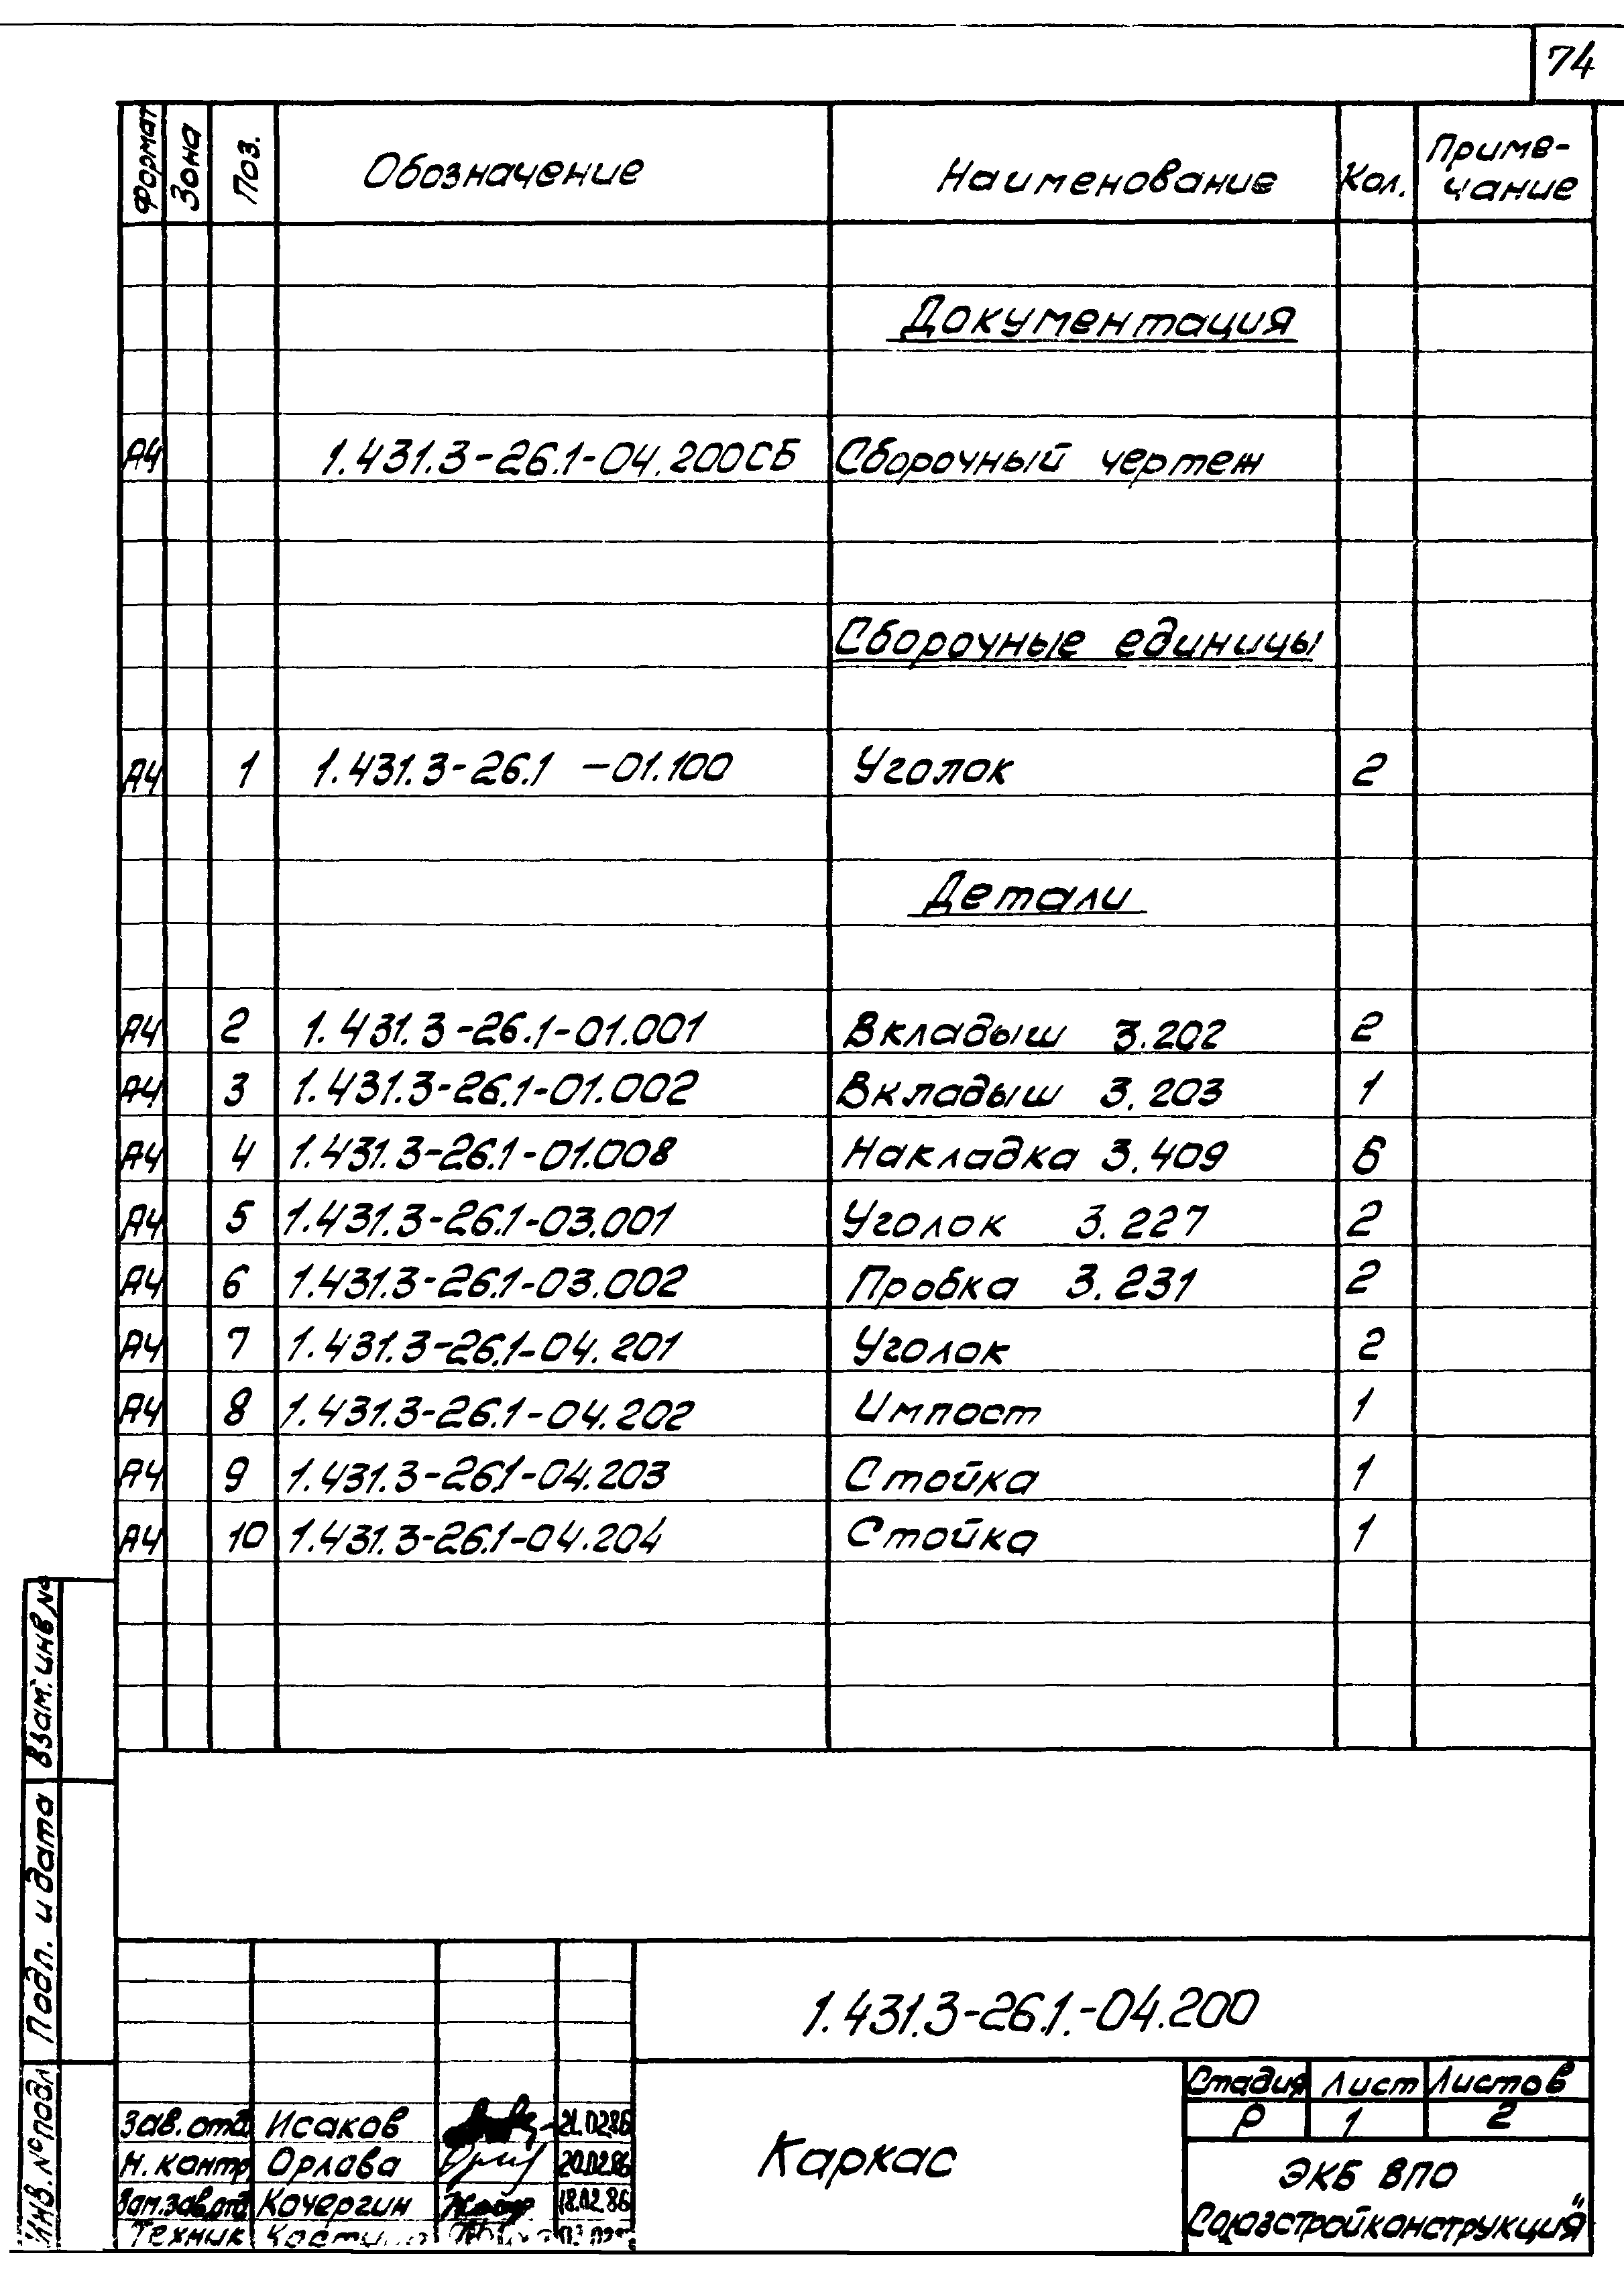 74
Формат Зона Поз. Обозначение Наименование Кол. Приме-
чание
Документация
А4 1.431.3-26.1-04.200СБ Сборочный чертеж
Сборочные единицы
А4 1 1.431.3-26.1 -01.100 Уголок 2
Детали
А4 2 1.431.3-26.1-01.001 Вкладыш 3.202 2
А4 3 1.431.3-26.1-01.002 Вкладыш 3.203 1
А4 4 1.431.3-26.1-01.008 Накладка 3.409 6
А4 5 1.431.3-26.1-03.001 Уголок 3.227 2
А4 6 1.431.3-26.1-03.002 Пробка 3.231 2
А4 7 1.431.3-26.1-04.201 Уголок 2
А4 8 1.431.3-26.1-04.202 Импост 1
А4 9 1.431.3-26.1-04.203 Стойка 1
А4 10 1.431.3-26.1-04.204 Стойка 1
Взам. инв №
Подп. и дата
Инв. № подл
1.431.3-26.1.-04.200
Каркас
Стадия Лист Листов
Р 1 2
ЭКБ ВПО
Союзстройконструкция"
Зав. отд Исаков 21.02.86
Н. контр Орлова 20.02.86
Зам.зав.отд Кочергин 18.02.86
Техник